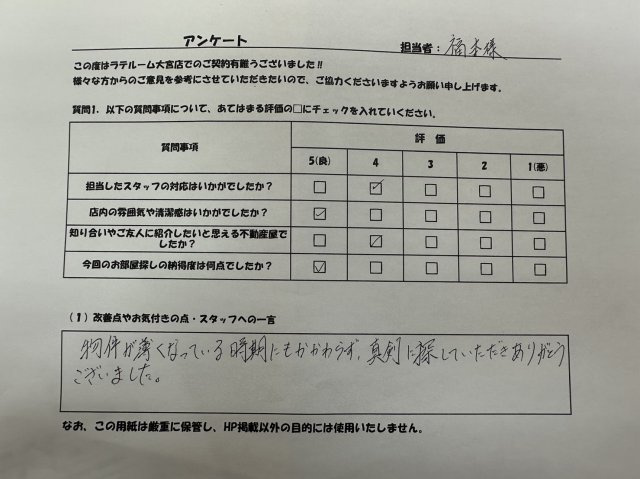 アンケート
担当者：福本様
この度はラテルーム大宮店でのご契約有難うございました!!
様々な方からのご意見を参考にさせていただきたいので、ご協力くださいますようお願い申し上げます。
質問1. 以下の質問事項について、あてはまる評価の□にチェックを入れていください。
質問事項
評価
5(良) 4 3 2 1(悪)
担当したスタッフの対応はいかがでしたか? □ ☑ □ □ □
店内の雰囲気や清潔感はいかがでしたか? ☑ □ □ □ □
知り合いやご友人に紹介したいと思える不動産屋で
したか? □ ☑ □ □ □
今回のお部屋探しの納得度は何点でしたか? ☑ □ □ □ □
(1)改善点やお気付きの点・スタッフへの一言
物件が薄くなっている時期にもかかわらず、真剣に探していただきありがとう
ございました。
なお、この用紙は厳重に保管し、HP掲載以外の目的には使用いたしません。